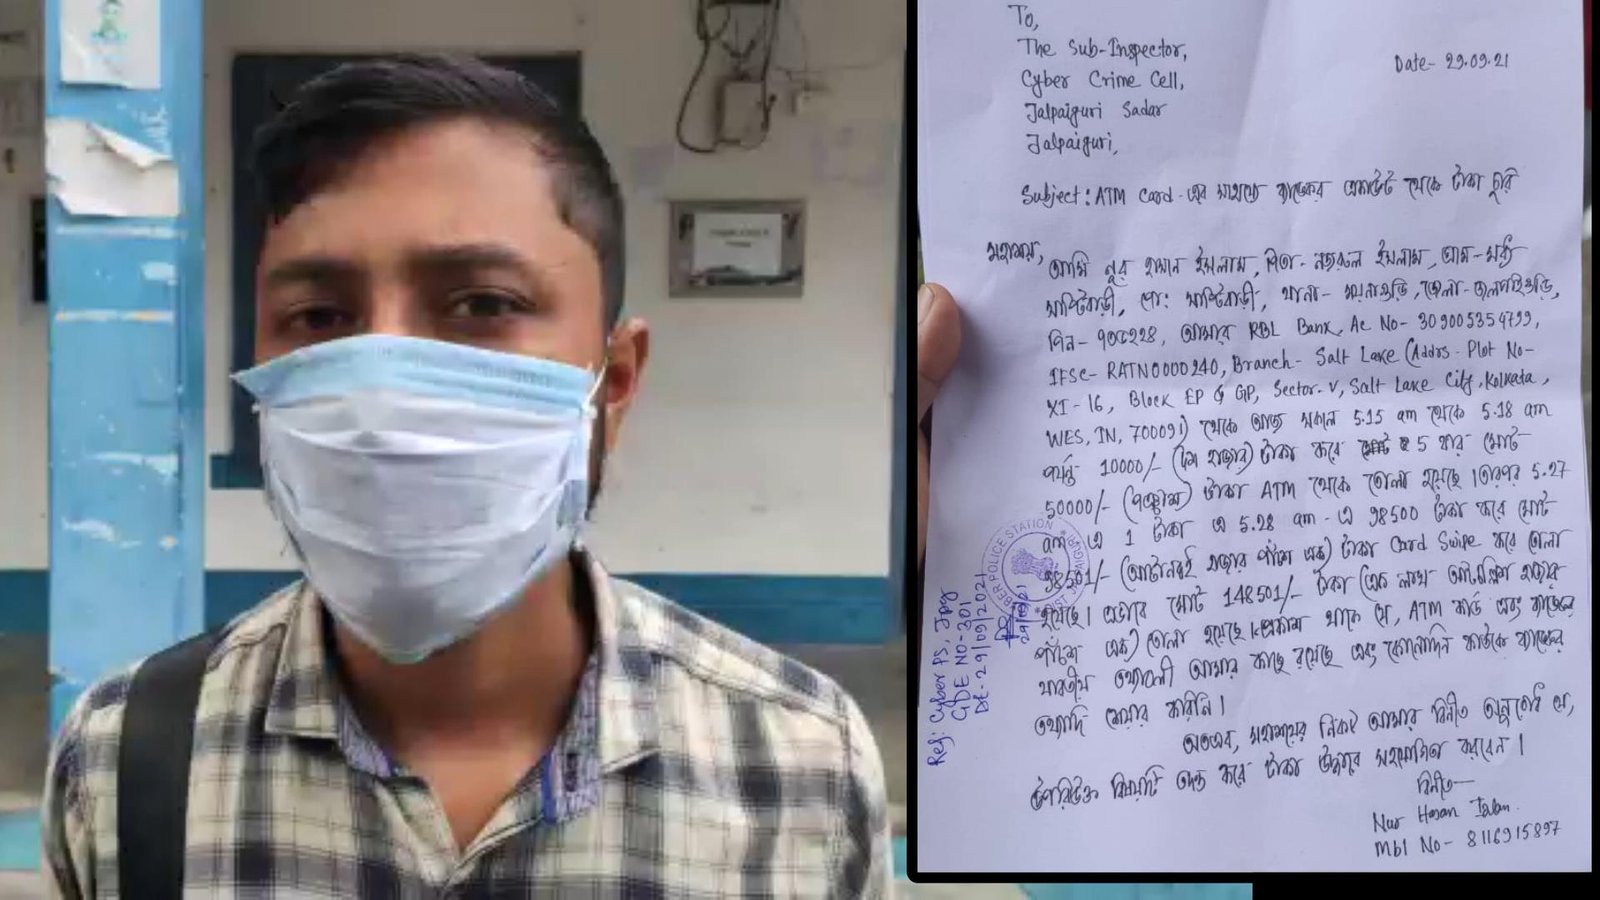 To,
The Sub-Inspector,
Cyber Crime Cell,
Jalpaiguri Sadar
Jalpaiguri,
Date- 29.09.21
Subject: ATM Card-এর মাধ্যমে ব্যাঙ্কের একাউন্ট থেকে টাকা চুরি
মহাশয়,
আমি নুর হাসান ইসলাম, পিতা- নজরুল ইসলাম, গ্রাম- মধ্য
সাপ্টিবাড়ী, পো: সাপ্টিবাড়ী, থানা- ময়নাগুড়ি, জেলা- জলপাইগুড়ি,
পিন- ৭৩৫২২৪, আমার RBL Bank, Ac No- 309005354799,
IFSC- RATN0000240, Branch- Salt Lake (Addrs- Plot No-
XI-16, Block EP & GP, Sector-V, Salt Lake City, Kolkata,
WES, IN, 700091) থেকে আজ সকাল 5.15 am থেকে 5.18 am
পর্যন্ত 10000/- (দশ হাজার) টাকা করে 5 বার মোট
50000/- (পঞ্চাশ) টাকা ATM থেকে তোলা হয়েছে। তারপর 5.27
am এ 1 টাকা এ 5.28 am-এ 98500 টাকা করে মোট
98501/- (আটানব্বই হাজার পাঁচশ এক) টাকা Card Swipe করে তোলা
হয়েছে। এভাবে মোট 148501/- টাকা (এক লাখ আটচল্লিশ হাজার
পাঁচশ এক) তোলা হয়েছে। প্রকাশ থাকে যে, ATM কার্ড এবং ব্যাঙ্কের
যাবতীয় তথ্যাবলী আমার কাছে রয়েছে এবং কোনোদিন কাউকে ব্যাঙ্কের
তথ্যাদি শেয়ার করিনি।
অতএব, মহাশয়ের নিকট আমার বিনীত অনুরোধ যে,
উপরিউক্ত বিষয়টি তদন্ত করে টাকা উদ্ধারে সহযোগিতা করবেন।
বিনীত—
Nur Hasan Islam.
Mbl No- 8116915897
Ref: Cyber PS, Jpg
GDE NO-301
Dt-29/09/2021
CYBER POLICE STATION
29/09/21